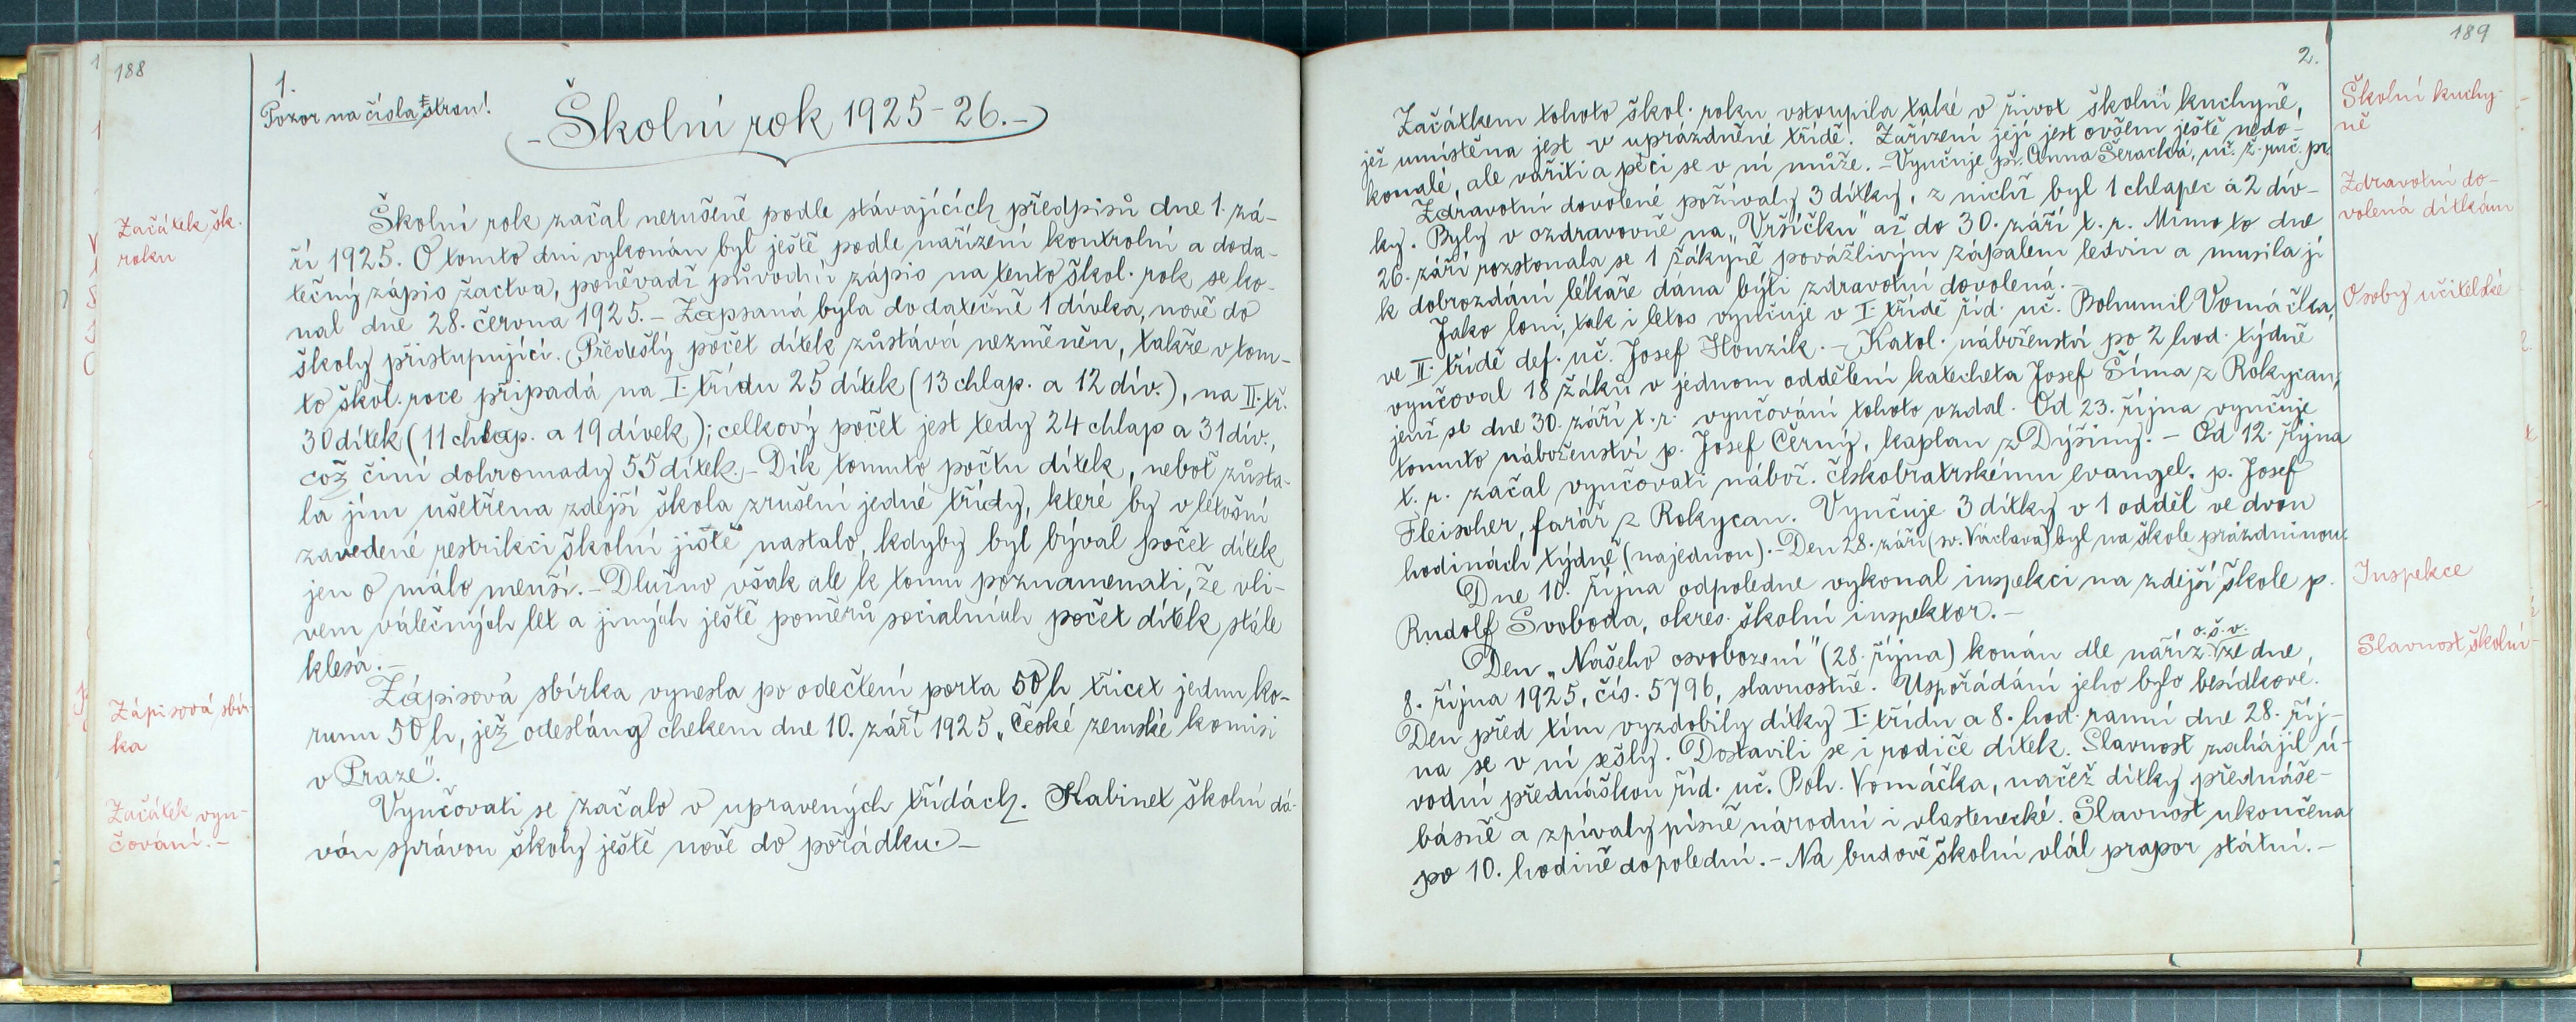 188
1.
Pozor na čísla stran!
- Školní rok 1925-26. -
Začátek šk.
roku
Školní rok začal nerušeně podle stávajících předpisů dne 1. zá-
ří 1925. O tomto dni vykonán byl ještě podle nařízení kontrolní a doda-
tečný zápis žactva, poněvadž původní zápis na tento škol. rok se ko-
nal dne 28. června 1925. - Zapsaná byla dodatečně 1 dívka, nově do
školy přistupující. Předešlý počet dítek zůstává nezměněn, takže v tom-
to škol. roce připadá na I. třídu 25 dítek (13 chlap. a 12 dív.), na II. tř.
30 dítek (11 chlap. a 19 dívek); celkový počet jest tedy 24 chlap a 31 dív.,
což činí dohromady 55 dítek. - Dík tomuto počtu dítek, neboť zůsta-
la jím ušetřena zdejší škola zrušení jedné třídy, které by v letošní
zavedené restrikci školní jistě nastalo, kdyby byl býval počet dítek
jen o málo menší. - Dlužno však ale k tomu poznamenati, že vli-
vem válečných let a jiných ještě poměrů socialních počet dítek stále
klesá. -
Zápisová sbír-
ka
Zápisová sbírka vynesla po odečtení porta 50 h třicet jednu ko-
runu 50 h, jež odeslány chekem dne 10. září 1925 „České zemské komisi
v Praze".
Začátek vyu-
čování. -
Vyučovati se začalo v upravených třídách. Kabinet školní dá-
ván správou školy ještě nově do pořádku. -
189
2.
Školní kuchy-
ně
Začátkem tohoto škol. roku vstoupila také v život školní kuchyně,
jež umístěna jest v uprázdněné třídě. Zařízení její jest ovšem ještě nedo-
konalé, ale vařiti a péci se v ní může. - Vyučuje pí. Anna Šeracká, uč. ž. ruč. pr.
Zdravotní do-
volená dítkám
Zdravotní dovolené požívaly 3 dítky, z nichž byl 1 chlapec a 2 dív-
ky. Byly v ozdravovně na „Vršíčku" až do 30. září t. r. Mimo to dne
26. září rozstonala se 1 žákyně povážlivým zápalem ledvin a musila jí
k dobrozdání lékaře dána býti zdravotní dovolená. -
Osoby učitelské
Jako loni, tak i letos vyučuje v I. třídě říd. uč. Bohumil Vomáčka,
ve II. třídě def. uč. Josef Houzík. - Katol. náboženství po 2 hod. týdně
vyučoval 18 žáků v jednom oddělení katecheta Josef Šíma z Rokycan,
jenž se dne 30. září t. r. vyučování tohoto vzdal. Od 23. října vyučuje
tomuto náboženství p. Josef Černý, kaplan z Dýšiny. - Od 12. října
t. r. začal vyučovati nábož. českobratrskému evangel. p. Josef
Fleischer, farář z Rokycan. Vyučuje 3 dítky v 1 odděl ve dvou
hodinách týdně (najednou). - Den 28. září (sv. Václava) byl na škole prázdninou.
Inspekce
Dne 10. října odpoledne vykonal inspekci na zdejší škole p.
Rudolf Svoboda, okres. školní inspektor. -
Slavnost školní -
o. š. v.
Den „Našeho osvobození" (28. října) konán dle naříz. ze dne
8. října 1925, čís. 5796, slavnostně. Uspořádání jeho bylo besídkové.
Den před tím vyzdobily dítky I. třídu a 8. hod. ranní dne 28. říj-
na se v ní sešly. Dostavili se i rodiče dítek. Slavnost zahájil ú-
vodní přednáškou říd. uč. Boh. Vomáčka, načež dítky přednáše-
básně a zpívaly písně národní i vlastenecké. Slavnost ukončena
po 10. hodině dopolední. - Na budově školní vlál prapor státní. -